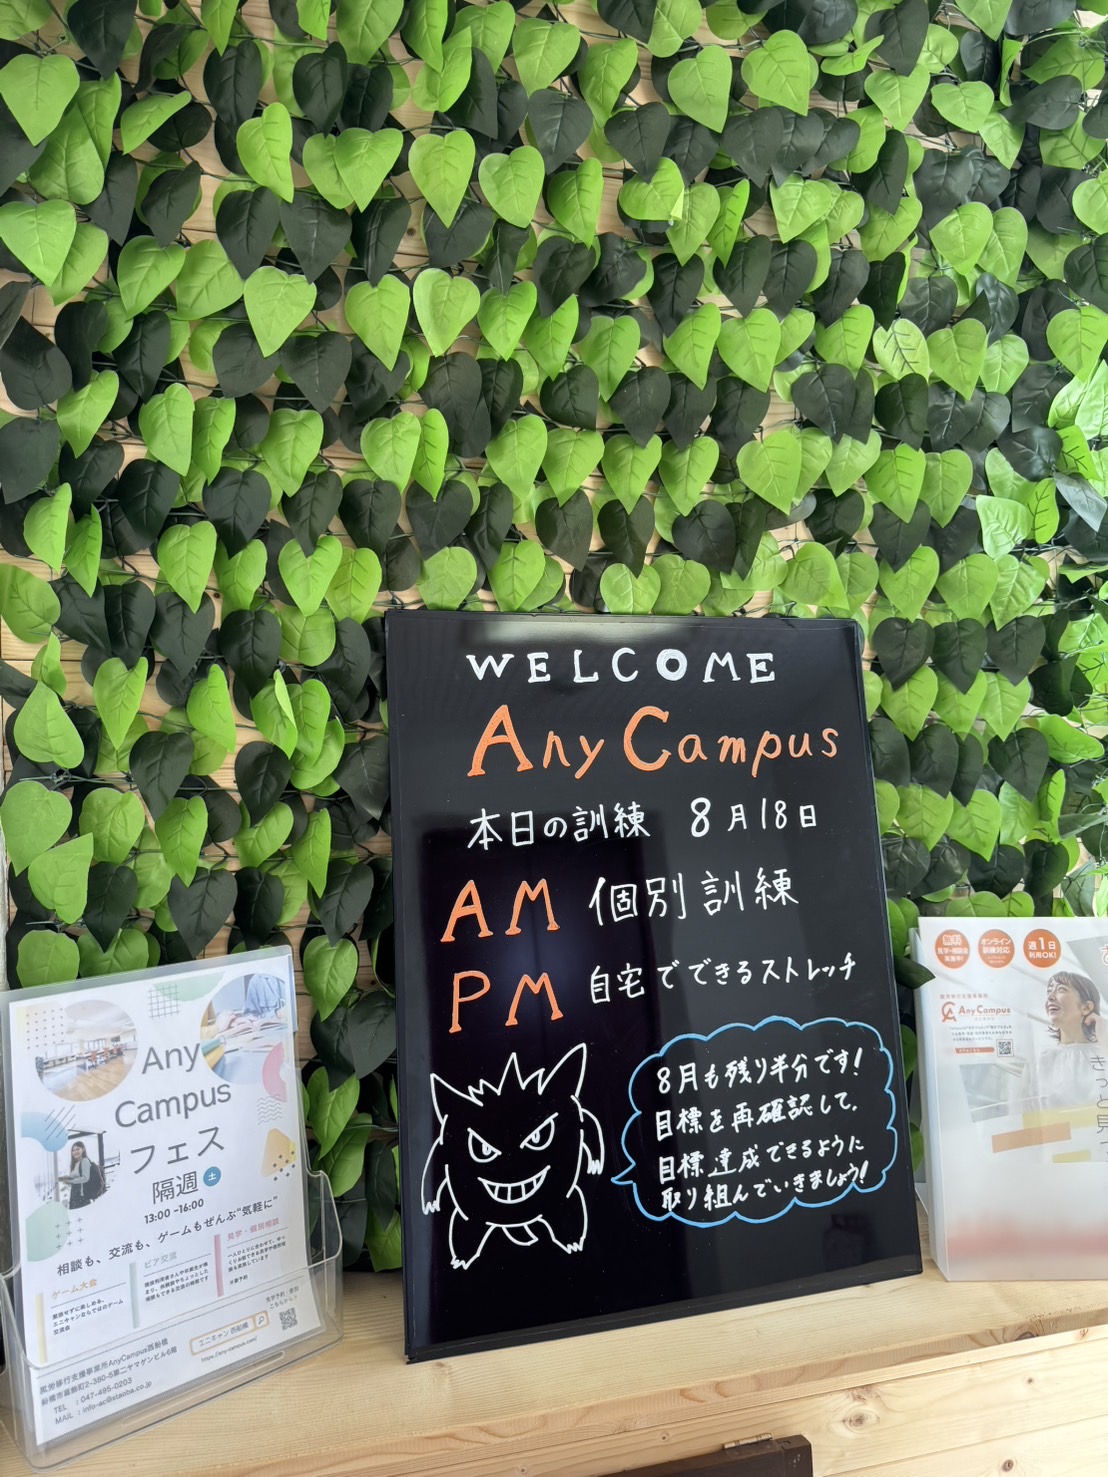 WELCOME
Any Campus
本日の訓練 8月18日
AM 個別訓練
PM 自宅でできるストレッチ
8月も残り半分です!
目標を再確認して、
目標達成できるように
取り組んでいきましょう!
Any
Campus
フェス
隔週 土
13:00 -16:00
相談も、交流も、ゲームもぜんぶ“気軽に”
ゲーム大会
ピア交流
見学・個別相談
就労移行支援事業所AnyCampus西船橋
TEL :047-495-0203
MAIL :info-ac@staoba.co.jp
エニキャン 西船橋
https://any-campus.com/
無料
オンライン
訓練対応
週1日
利用OK!
就労移行支援事業所
Any Campus
きっと見